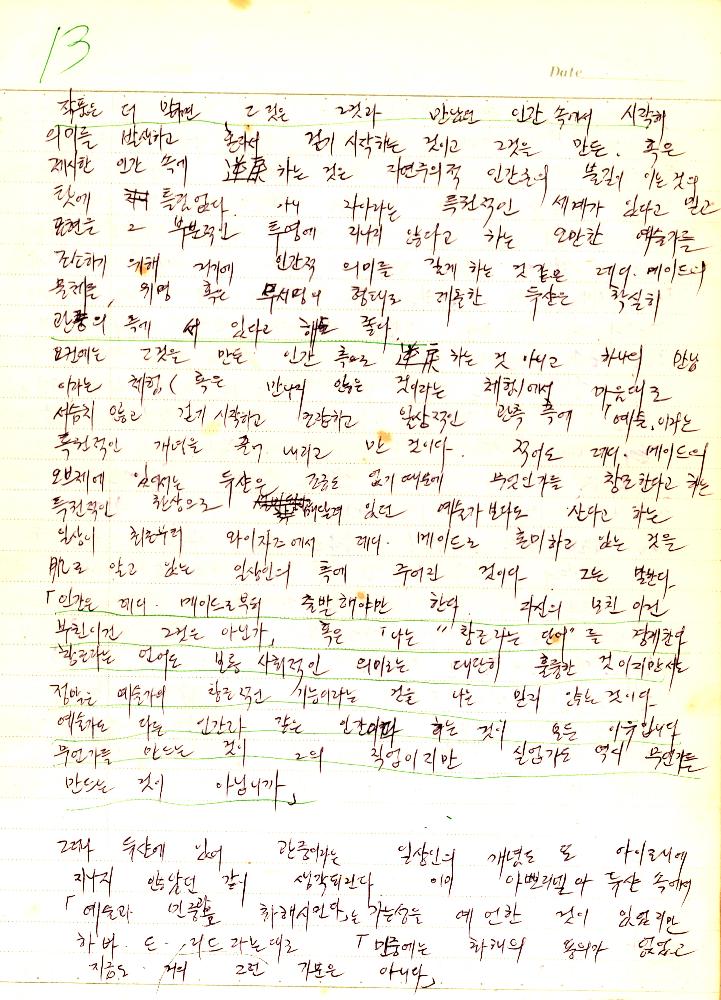 13
Date
작품은 더 말하면 그것은 그것과 만났던 인간 속에서 시작해
의미를 발생하고 혼자서 걷기 시작하는 것이고 그것을 만든, 혹은
제시한 인간 속에 逆戻 하는 것은 자연주의적 인간의 이는 것의
탓에 틀림없다. 아니 자아라는 특권적인 세계가 있다고 믿고
표현을 그 부분적인 투영에 지나지 않다고 하는 오만한 예술가를
조소하기 위해 거기에 인간적 의미를 갖게 하는 것 같은 레디·메이드의
물체를, 위명 혹은 무서명의 형태로 제출한 뒤샹은 확실히
관중의 측에 서 있다고 해도 좋다.
요컨데는 그것을 만든 인간 측으로 逆戻 하는 것 아니고 하나의 만남
이라는 체험( 혹은 만나지 않는 것이라는 체험)에서 마음대로
서슴치 않고 걷기 시작하고 일상적인 관측 측에 「예술」이라는
특권적인 개념을 끌어 내리고 만 것이다. 적어도 레디·메이드의
오브제에 있어서는 뒤샹은 조금도 없기 때문에 무엇인가를 창조한다고 하는
특권적인 환상으로 매달려 있던 예술가보다도 산다고 하는
일상이 최초부터 와이자즈에서 레디·메이드로 혼미하고 있는 것을
肌로 알고 있는 일상인의 측에 주어진 것이다. 그는 말한다.
「인간은 레디·메이드로부터 출발해야만 한다. 자신의 모친이건
부친이건 그것은 아닌가, 혹은 「나는 "창조라는 단어"를 경계한다
창조라는 언어도 보통 사회적인 의미로는 대단히 훌륭한 것이지만서도
정말은 예술가의 창조적인 기능이라는 것을 나는 믿지 않는 것이다.
예술가도 다른 인간과 같은 인간이다 하는 것이 모든 이유입니다
무언가를 만드는 것이 그의 직업이지만 실업가도 역시 무언가를
만드는 것이 아닙니까」
그러나 뒤샹에 있어 관중이라는 일상인의 개념도 또 아이로니에
지나지 않았던 같이 생각되진다. 이미 아뽀리넬아 뒤샹 속에서
「예술과 민중을 화해시킨다」는 가능성을 예언한 것이 있었지만
하바·드·리드라는대로 「민중에는 화해의 용의가 없었고
지금도 거의 그런 기분은 아니다」